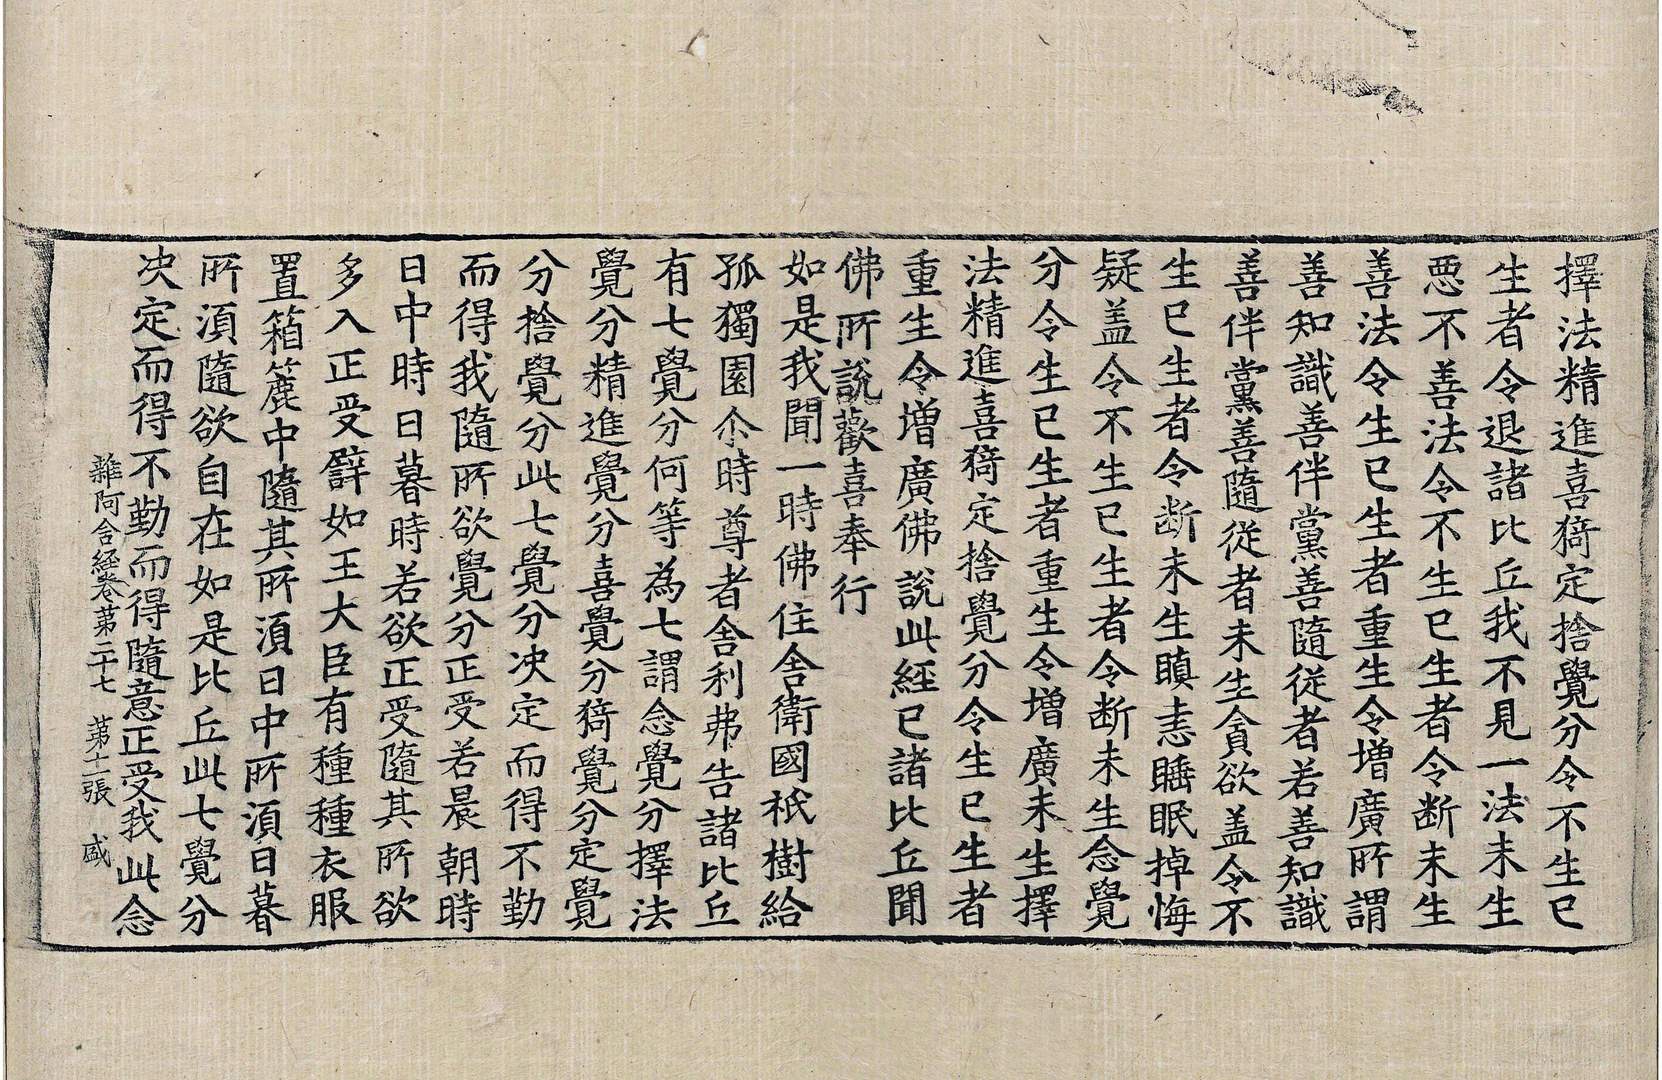 擇法精進喜猗定捨覺分令不生已
生者令退諸比丘我不見一法未生
惡不善法令不生已生者令断未生
善法令生已生者重生令增廣所謂
善知識善伴黨善隨從者若善知識
善伴黨善隨從者未生貪欲盖令不
生已生者令断未生瞋恚睡眠掉悔
疑盖令不生已生者令断未生念覺
分令生已生者重生令增廣未生擇
法精進喜猗定捨覺分令生已生者
重生令增廣佛說此經已諸比丘聞
佛所說歡喜奉行
如是我聞一時佛住舍衛國祇樹給
孤獨園尒時尊者舍利弗告諸比丘
有七覺分何等為七謂念覺分擇法
覺分精進覺分喜覺分猗覺分定覺
分捨覺分此七覺分決定而得不勤
而得我隨所欲覺分正受若晨朝時
日中時日暮時若欲正受隨其所欲
多入正受譬如王大臣有種種衣服
置箱簏中隨其所湏日中所湏日暮
所湏隨欲自在如是比丘此七覺分
决定而得不勤而得隨意正受我此念
雜阿含経卷苐二十七 苐十一張 盛